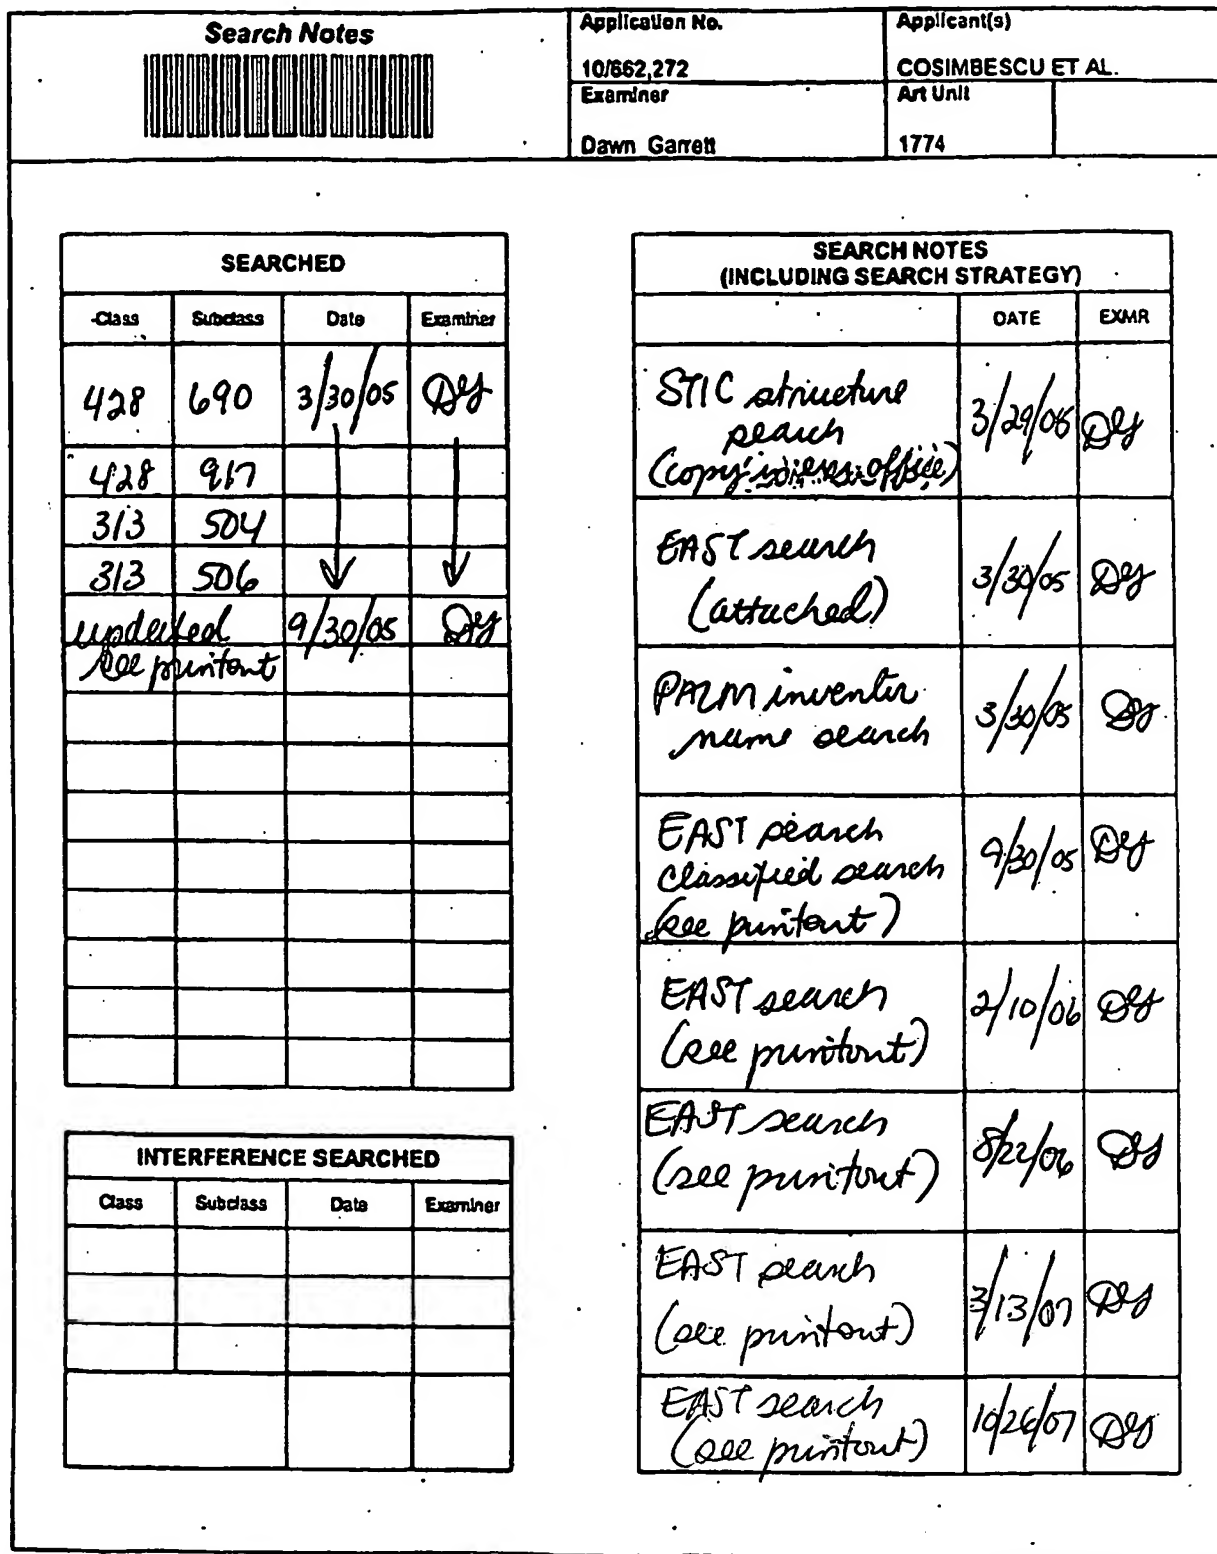 Search Notes
Application No.
10/662,272
Applicant(s)
COSIMBESCU ET AL.
Examiner
Dawn Garrett
Art Unit
1774
SEARCHED
Class Subclass Date Examiner
428 690 3/30/05 DG
428 917
313 504
313 506
updated 9/30/05 DG
see printout
INTERFERENCE SEARCHED
Class Subclass Date Examiner
SEARCH NOTES
(INCLUDING SEARCH STRATEGY)
DATE EXMR
STIC structure
search 3/29/05 DG
(copy office)
EAST search
(attached) 3/30/05 DG
PALM inventor
name search 3/30/05 DG
EAST search
classified search 9/30/05 DG
(see printout)
EAST search 2/10/06 DG
(see printout)
EAST search
(see printout) 8/22/06 DG
EAST search
(see printout) 3/13/07 DG
EAST search
(see printout) 10/26/07 DG